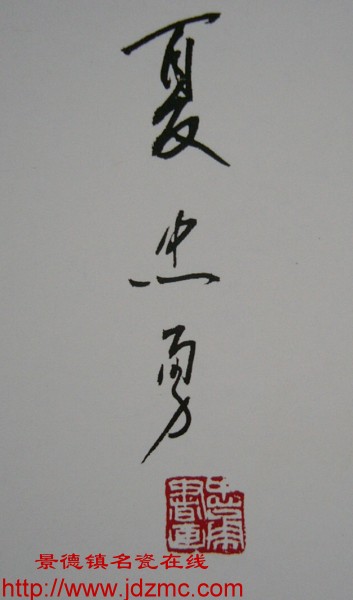 夏忠勇
景德镇名瓷在线
http://www.jdzmc.com/